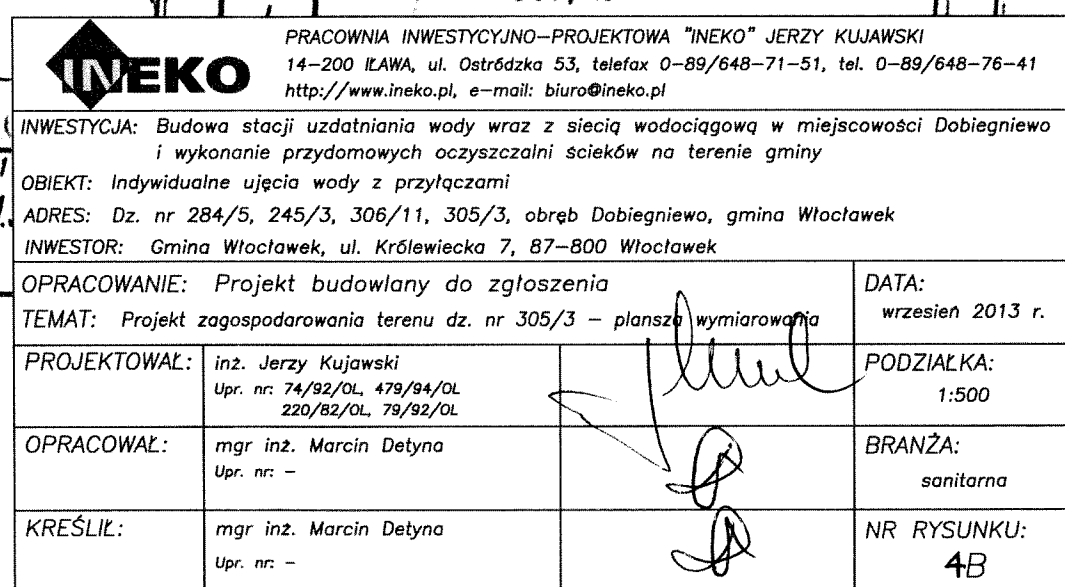 INEKO
PRACOWNIA INWESTYCYJNO-PROJEKTOWA "INEKO" JERZY KUJAWSKI
14-200 IŁAWA, ul. Ostródzka 53, telefax 0-89/648-71-51, tel. 0-89/648-76-41
http://www.ineko.pl, e-mail: biuro@ineko.pl
INWESTYCJA: Budowa stacji uzdatniania wody wraz z siecią wodociągową w miejscowości Dobiegniewo
i wykonanie przydomowych oczyszczalni ścieków na terenie gminy
OBIEKT: Indywidualne ujęcia wody z przyłączami
ADRES: Dz. nr 284/5, 245/3, 306/11, 305/3, obręb Dobiegniewo, gmina Włocławek
INWESTOR: Gmina Włocławek, ul. Królewiecka 7, 87-800 Włocławek
OPRACOWANIE: Projekt budowlany do zgłoszenia
TEMAT: Projekt zagospodarowania terenu dz. nr 305/3 - plansza wymiarowania
DATA:
wrzesień 2013 r.
PROJEKTOWAŁ:
inż. Jerzy Kujawski
Upr. nr: 74/92/OL, 479/94/OL
220/82/OL, 79/92/OL
PODZIAŁKA:
1:500
OPRACOWAŁ:
mgr inż. Marcin Detyna
Upr. nr: -
BRANŻA:
sanitarna
KREŚLIŁ:
mgr inż. Marcin Detyna
Upr. nr: -
NR RYSUNKU:
4B